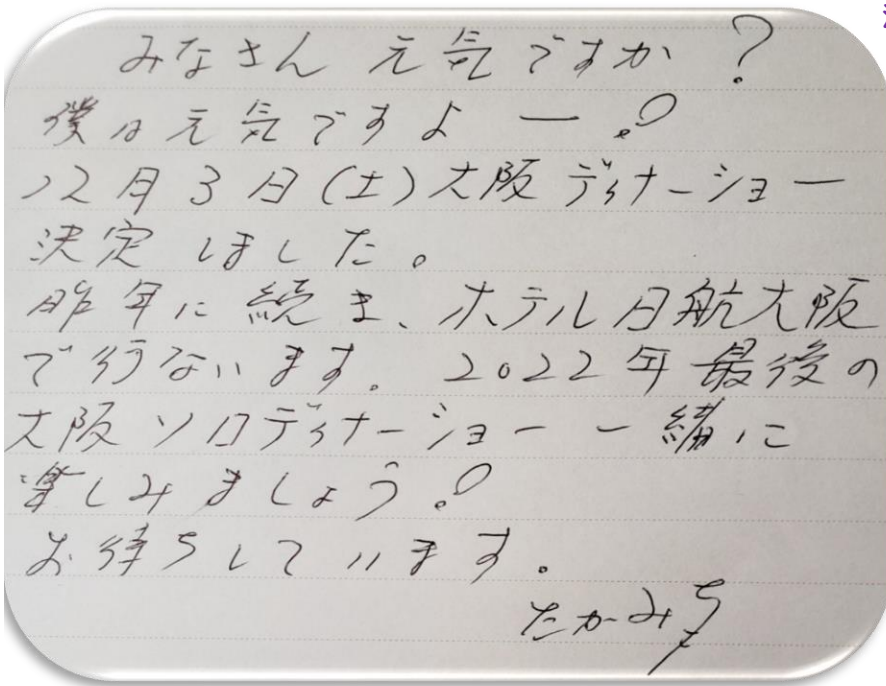 みなさん 元気ですか?
僕は元気ですよー!
12月3日(土)大阪ディナーショー
決定しました。
昨年に続き、ホテル日航大阪
で行ないます。2022年最後の
大阪ソロディナーショー一緒に
楽しみましょう!
お待ちしています。
たかみち